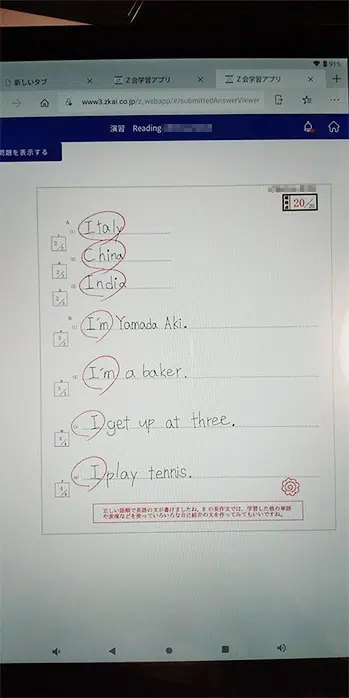 91%
新しいタブ × Z会学習アプリ × Z会学習アプリ × +
www3.zkai.co.jp/z_webapp/#/submittedAnswerViewer
演習 Reading
問題を表示する
20/20
A
(1) Italy
2/2
(2) China
2/2
(3) India
2/2
B
(1) I'm Yamada Aki.
3/3
(2) I'm a baker.
3/3
(3) I get up at three.
4/4
(4) I play tennis.
4/4
正しい語順で英語の文が書けましたね。Bの英作文では、学習した他の単語
や表現などを使っていろいろな自己紹介の文を作ってみてもいいですね。